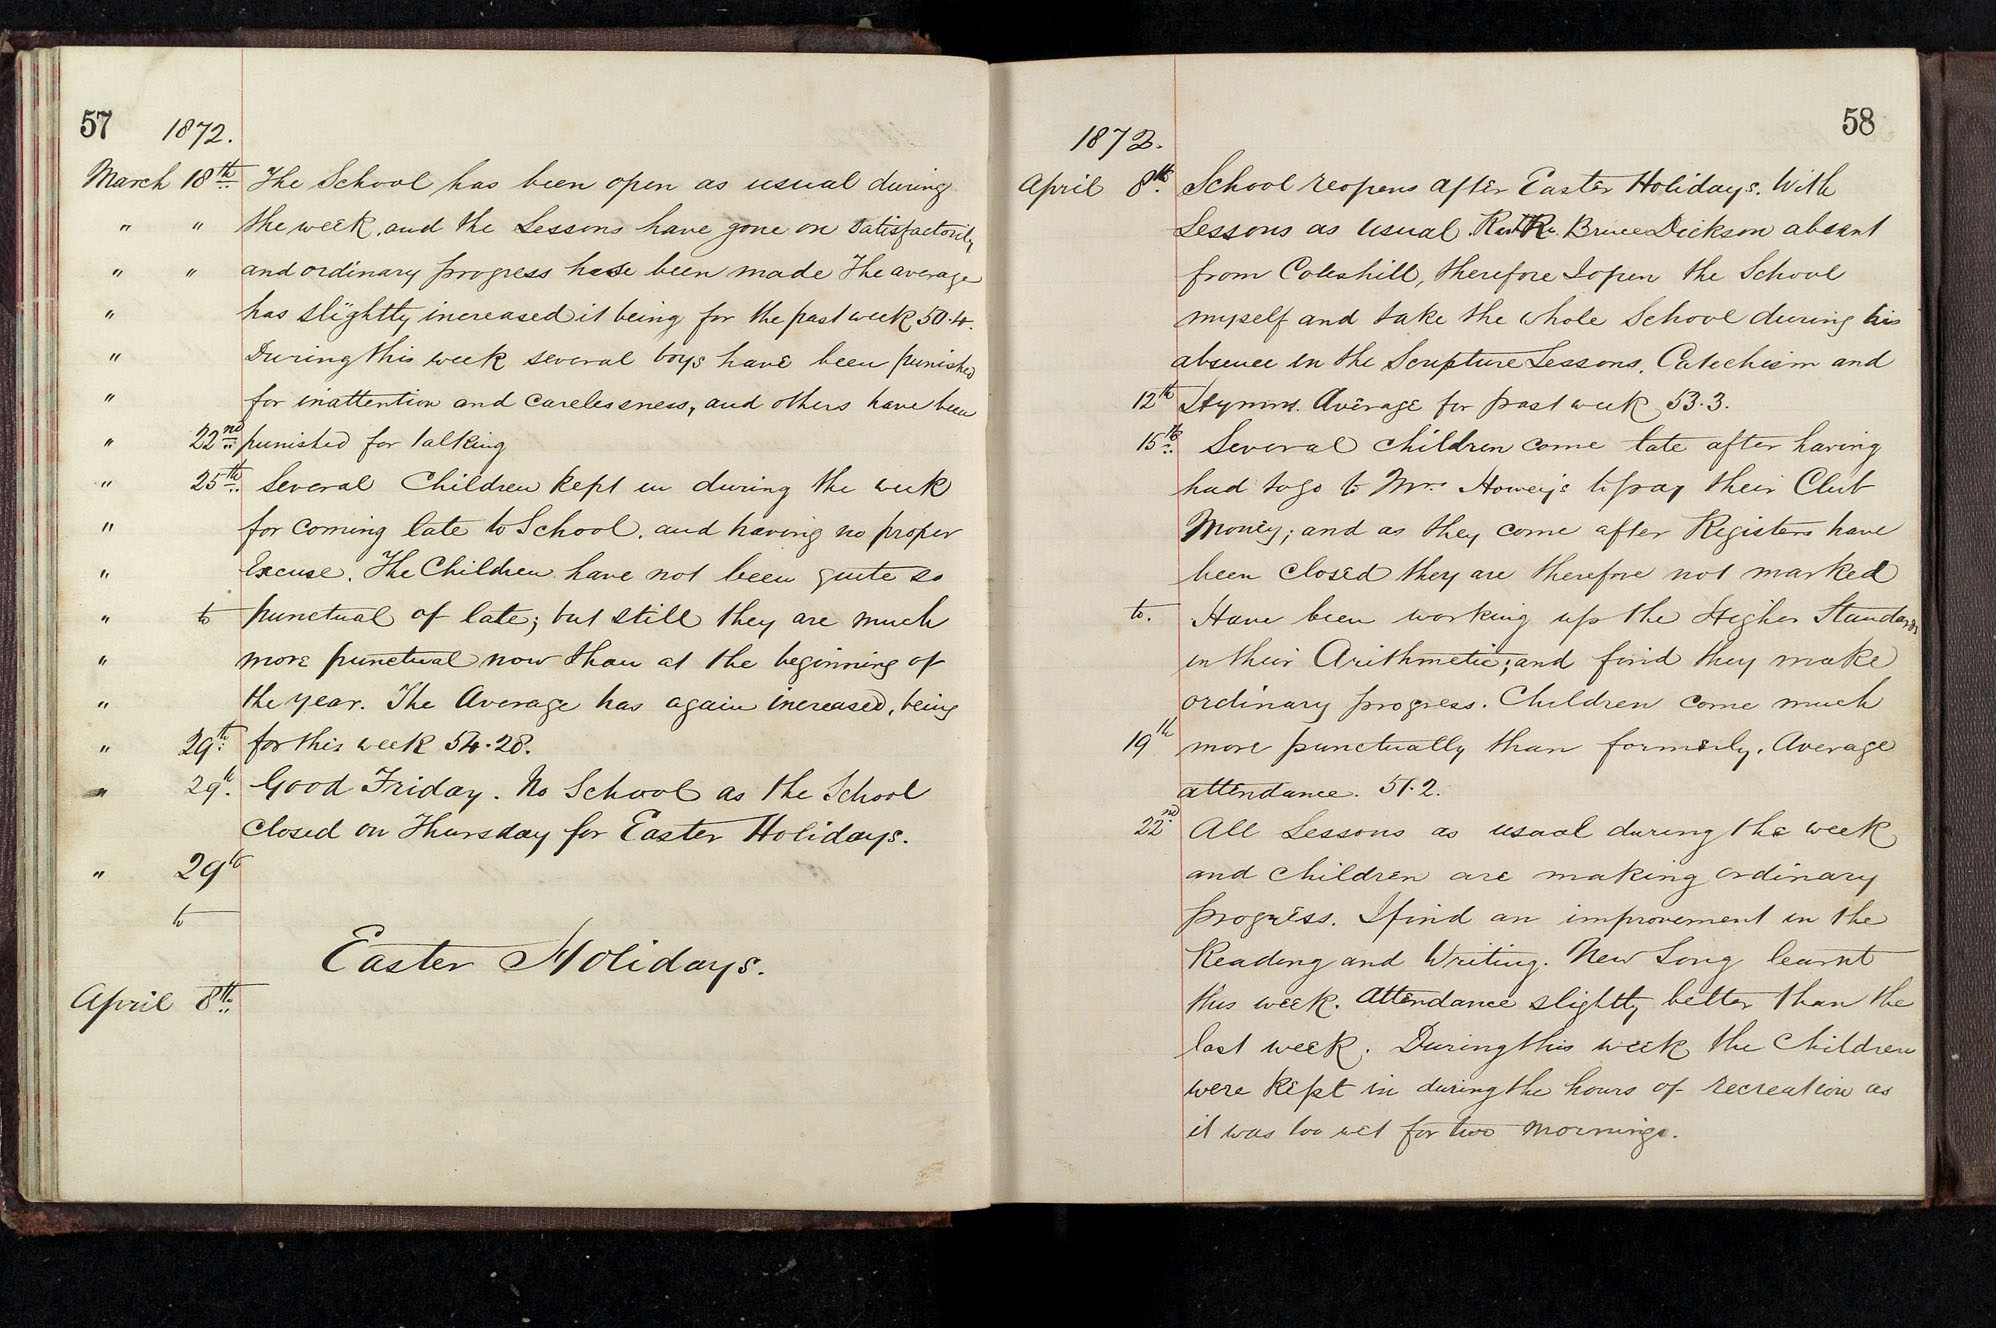 57
1872.
March 18th. The School has been open as usual during
" " the week, and the Lessons have gone on satisfactorily
" " and ordinary progress have been made The average
" has slightly increased it being for the past week 50.4.
" During this week several boys have been punished
" for inattention and carelessness, and others have been
" 22nd punished for talking
" 25th. Several Children kept in during the week
" for coming late to School, and having no proper
" Excuse. The Children have not been quite so
" to punctual of late; but still they are much
" more punctual now than at the beginning of
" the year. The Average has again increased, being
" 29th for this week 54.28.
" 29th. Good Friday. No School as the School
closed on Thursday for Easter Holidays.
" 29th
to
Easter Holidays.
April 8th
58
1872.
April 8th. School reopens after Easter Holidays. With
Lessons as usual. R. Bruce Dickson absent
from Coleshill, therefore I open the School
myself and take the whole School during his
absence in the Scripture Lessons, Catechism and
12th Hymns. Average for past week 53.3.
15th. Several children come late after having
had to go to Mrs Howey's to pay their Club
Money; and as they come after Registers have
been closed they are therefore not marked
to. Have been working up the Higher Standards
in their Arithmetic; and find they make
ordinary progress. Children come much
19th more punctually than formerly. Average
attendance. 51.2.
22nd All Lessons as usual during the week
and children are making ordinary
progress. I find an improvement in the
Reading and Writing. New Song learnt
this week. Attendance slightly better than the
last week. During this week the Children
were kept in during the hours of recreation as
it was too wet for two mornings.